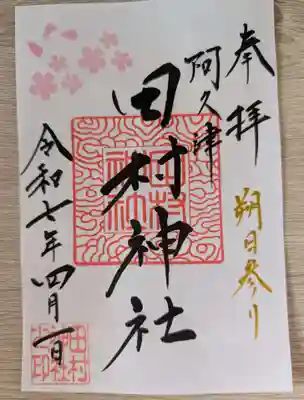 奉拝
朔日参り
阿久津
田村神社
令和七年四月一日
田村
神社
之印